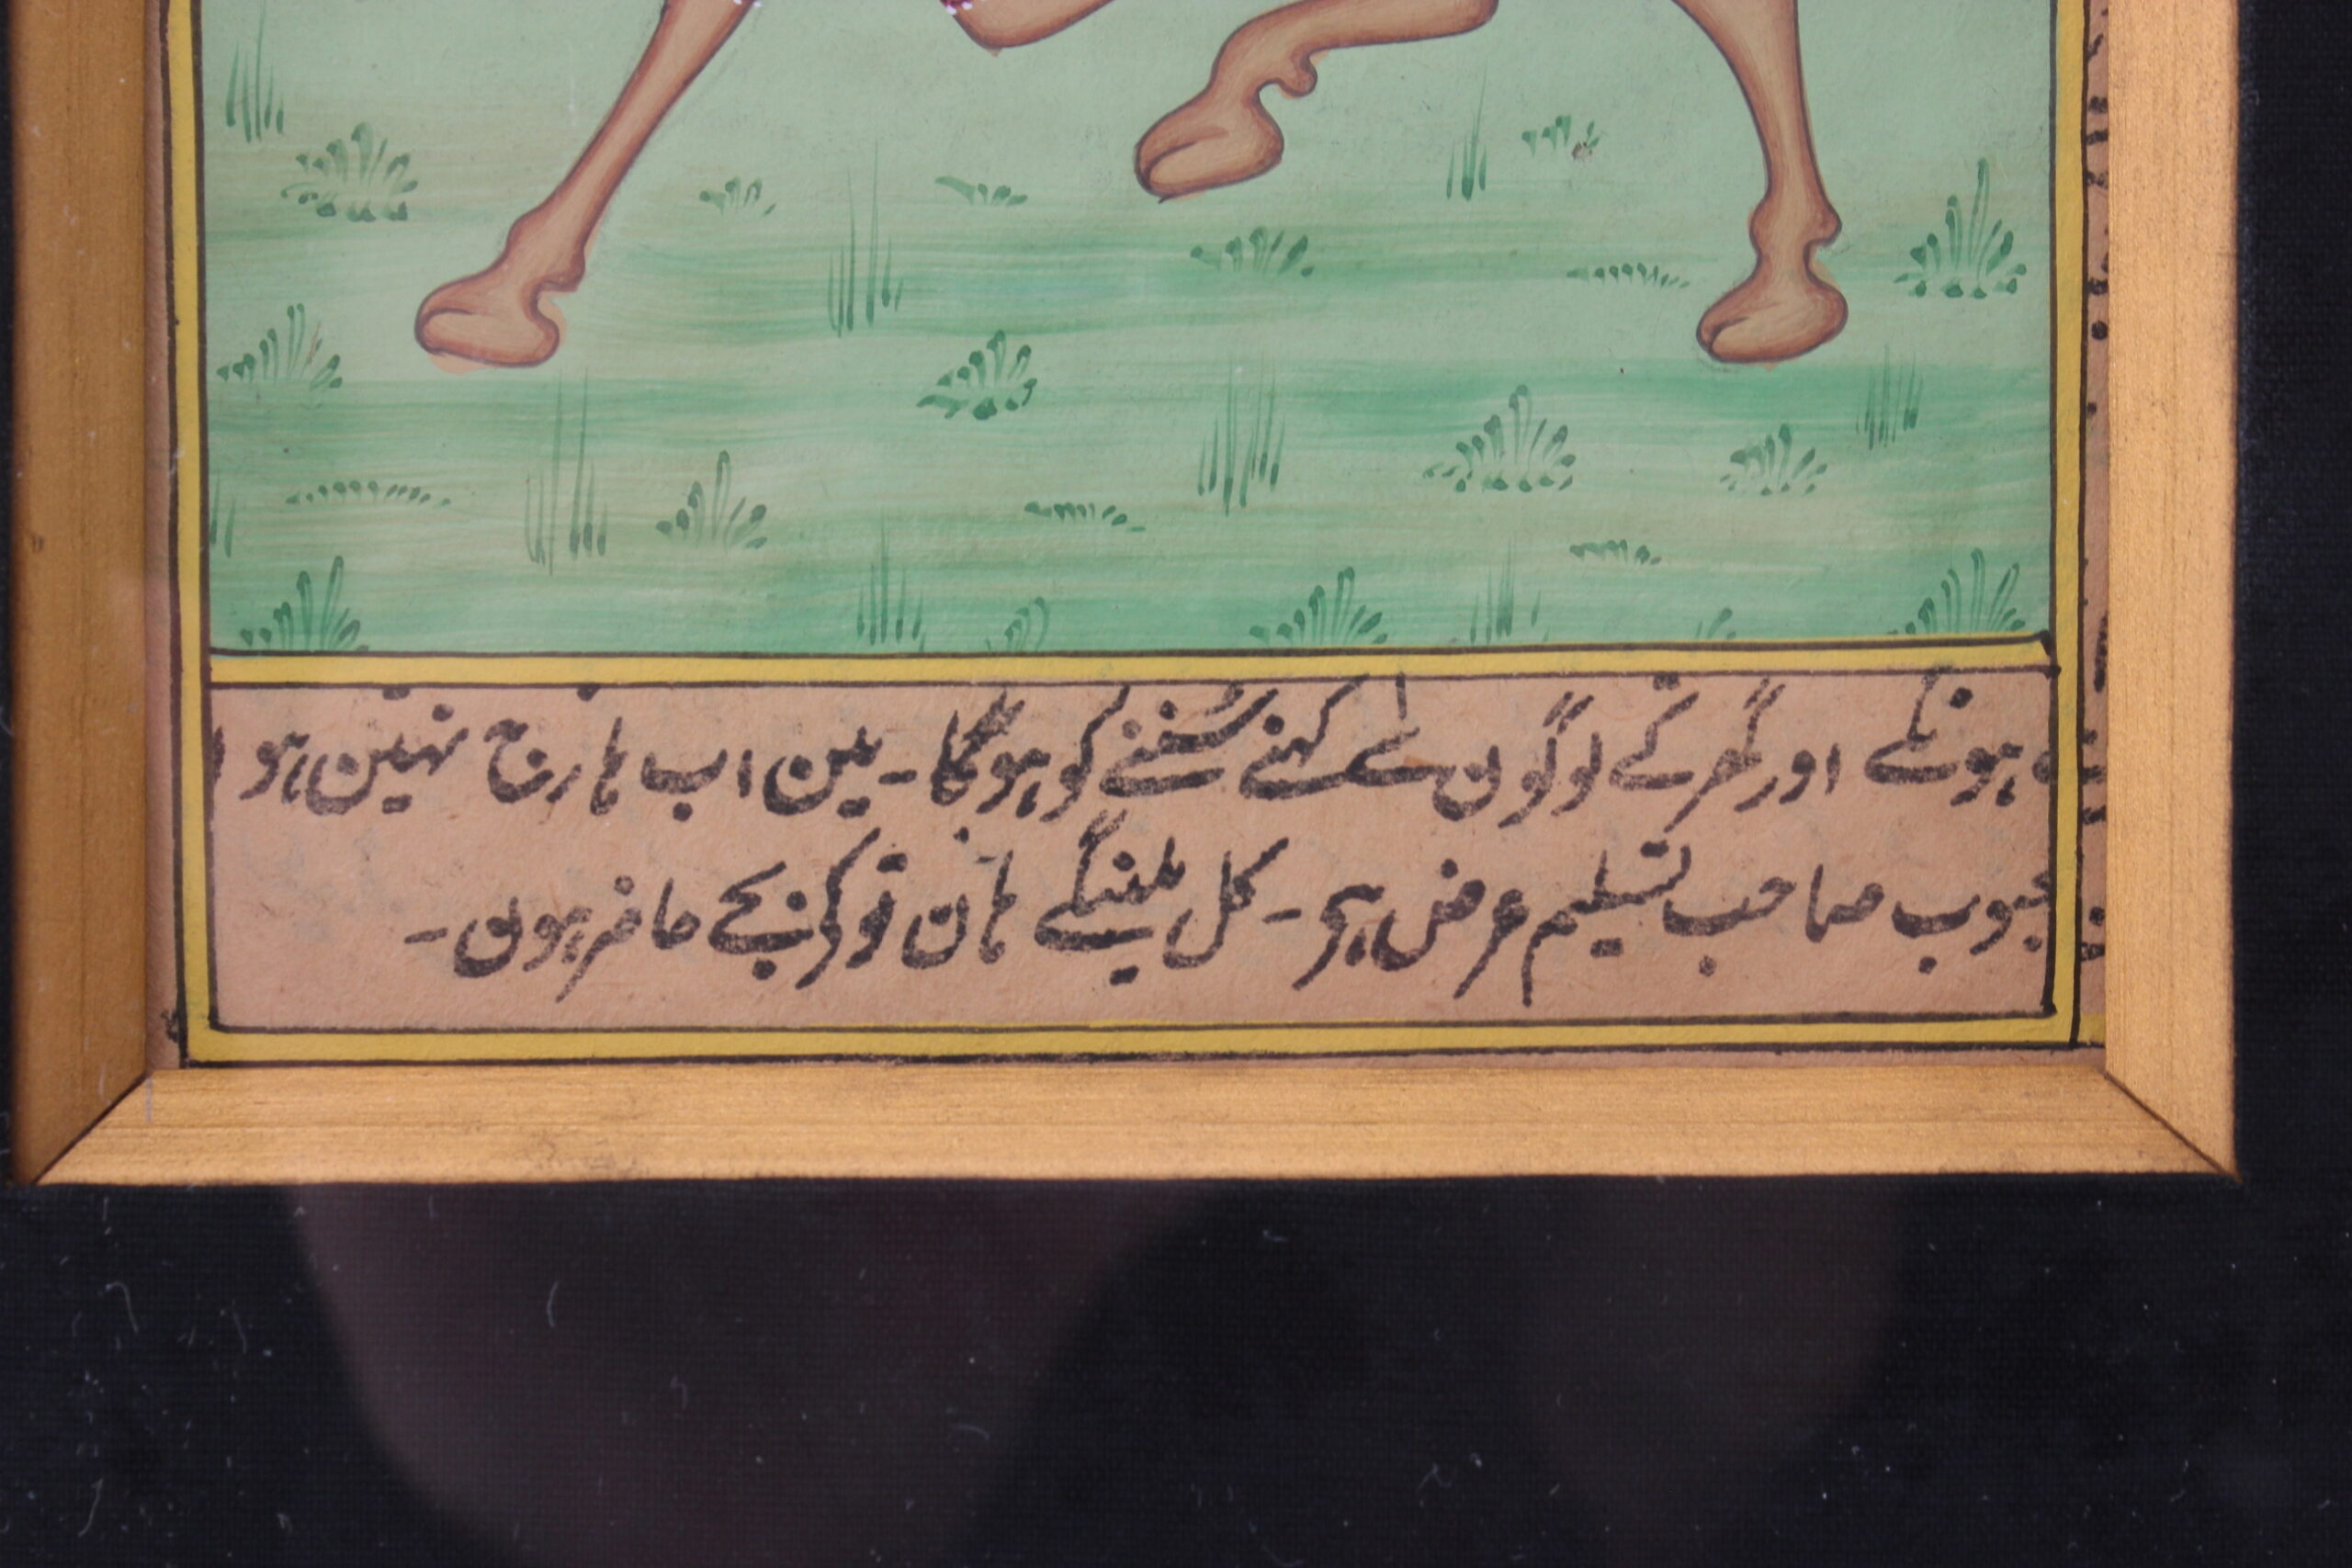 ہونگے اور گھر کے لوگوں سے کہنے سننے کو ہوگا۔ مین اب ہارج نہین ہو
محبوب صاحب تسلیم عرض ہی۔ کل ملینگے ہان تو کے بجے حاضر ہوں۔